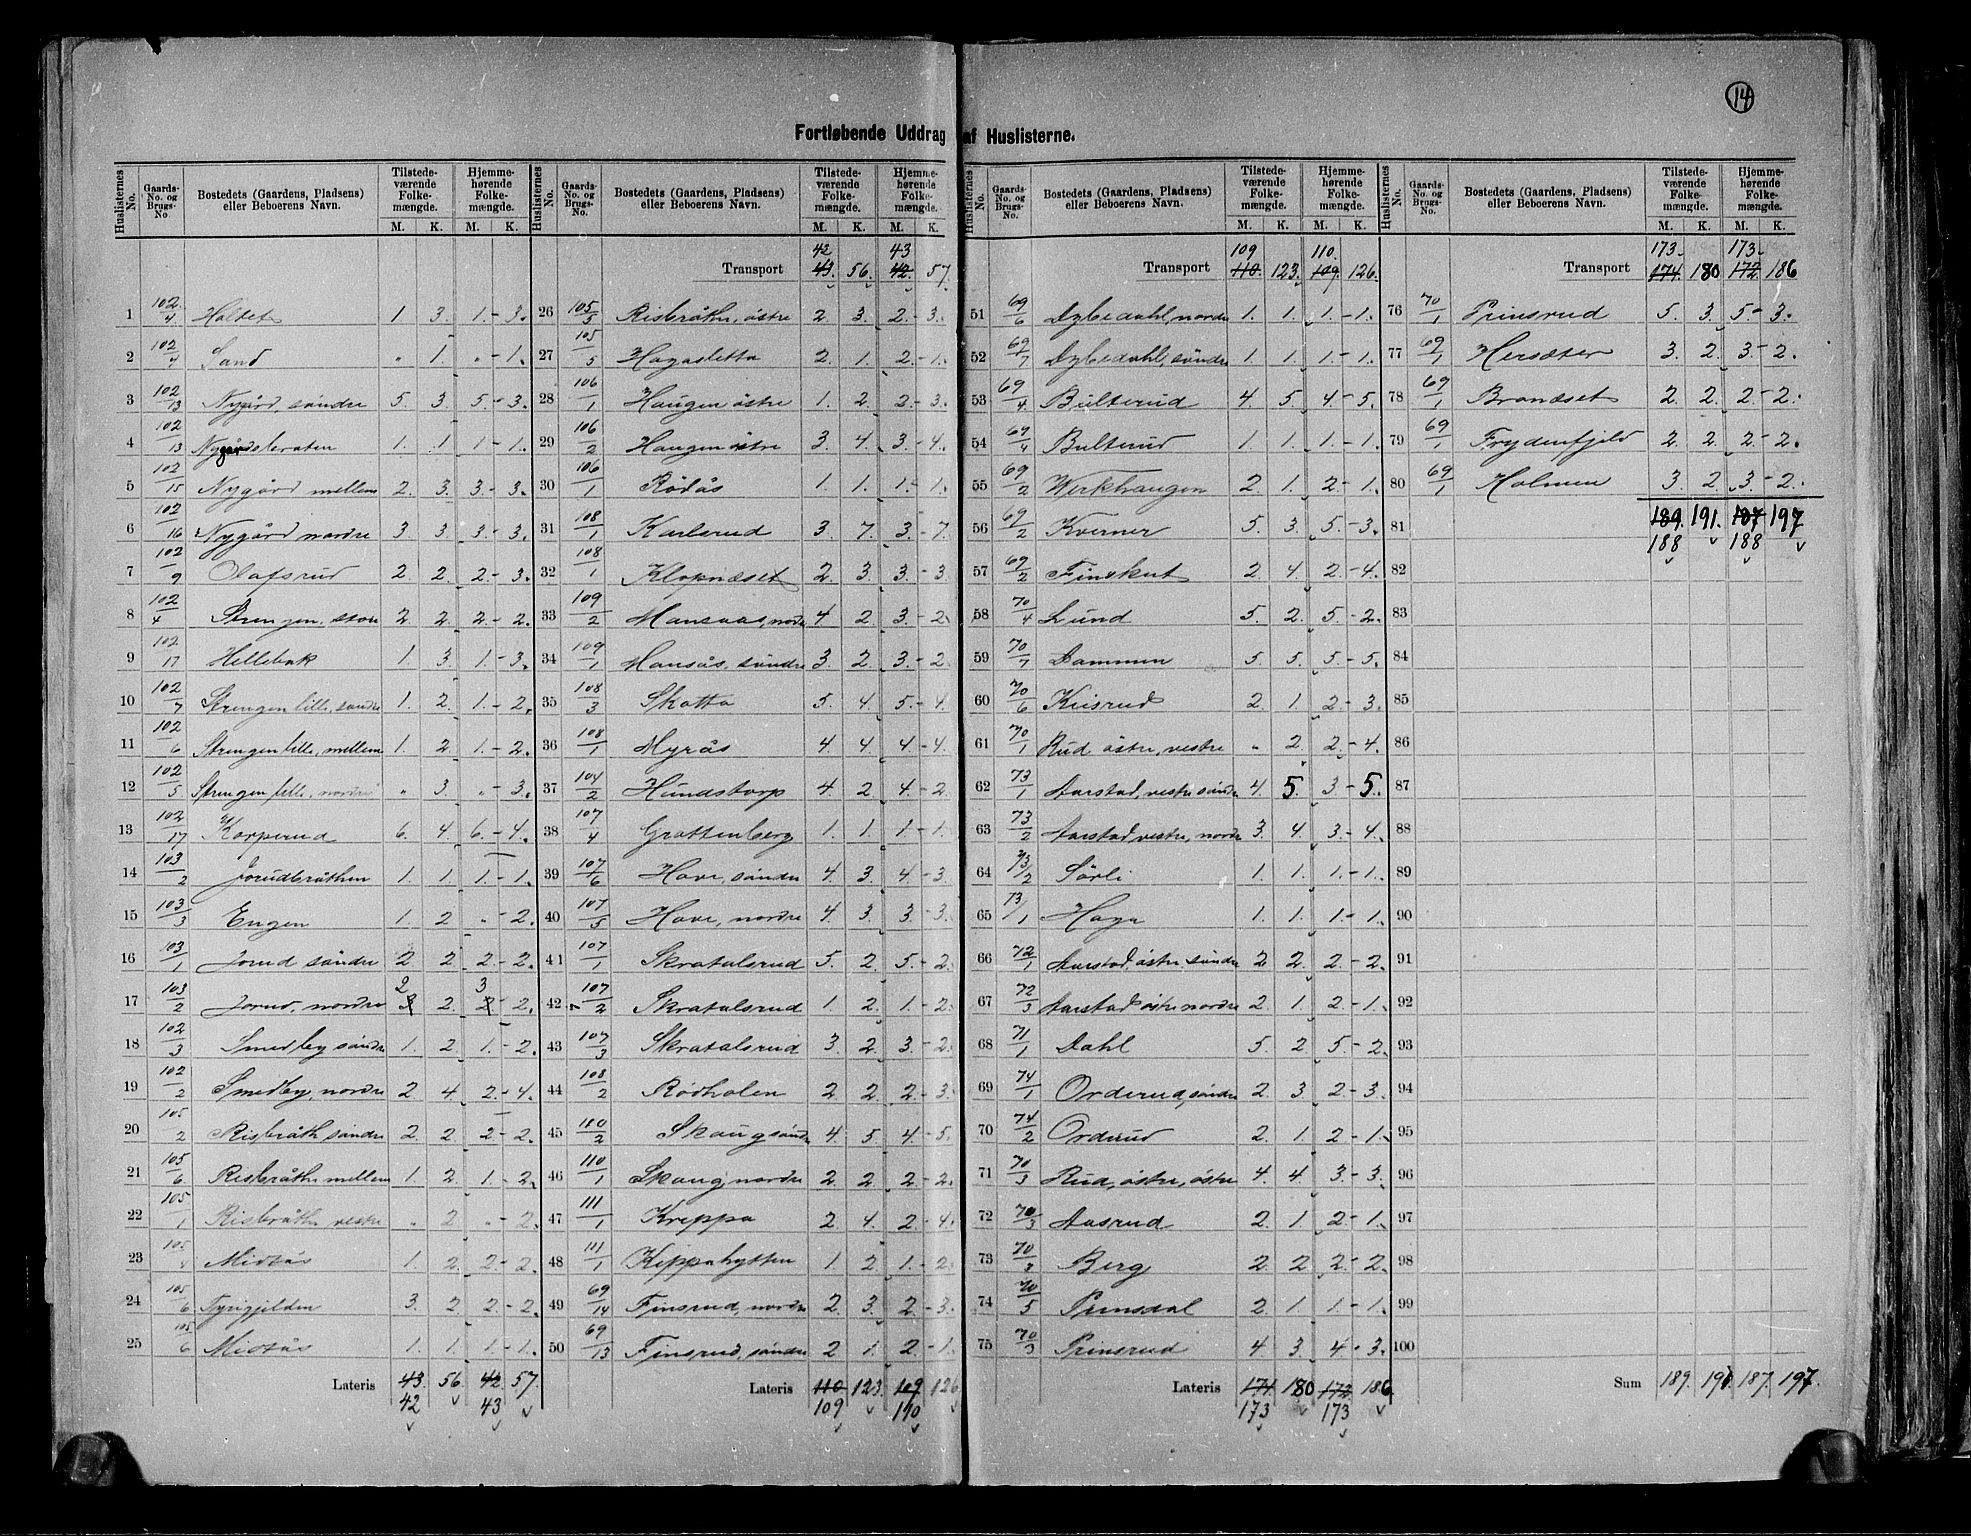 14
Fortløbende Uddrag af Huslisterne.
Huslisternes No. Gaards-No. og Brugs-No. Bostedets (Gaardens, Pladsens) eller Beboerens Navn. Tilstedeværende Folkemængde. M. K. Hjemmehørende Folkemængde. M. K.
1 102/4 Holtet 1 3. 1.- 3.
2 102/4 Sand " 1. " - 1.
3 102/13 Nygård, søndre 5. 3. 5.- 3.
4 102/13 Nygårdsbraten 1. 1 1.- 1.
5 102/15 Nygård mellem 2. 3. 3.- 3.
6 102/16 Nygård nordre 3. 3. 3.- 3.
7 102/9 Olafsrud 2. 2. 2.- 3.
8 102/4 Strengen, store 2. 2. 2.- 2.
9 102/17 Hellebæk 1. 3. 1.- 3.
10 102/7 Strengen lille, søndre 1. 2. 1.- 2.
11 102/6 Strengen lille, mellem 1. 2. 1.- 2.
12 102/5 Strengen lille, nordre " 3. " - 3.
13 102/17 Korperud 6. 4. 6.- 4.
14 103/2 Jorudbråthen 1. 1. 1.- 1.
15 103/3 Engen 1. 2 " - 2.
16 103/1 Jorud søndre 2 2. 2.- 2.
17 103/2 Jorud, nordre 2 2. 3 - 2.
18 102/3 Smedby søndre 1. 2. 1.- 2.
19 102/2 Smedby, nordre 2 4. 2.- 4.
20 105/2 Risbråth søndre 2. 2. 2- 2.
21 105/6 Risbråthe mellem 1. 2. 1.- 2.
22 105/1 Risbråthe vestre " 2 " - 2.
23 105/4 Midtås 1. 2. 2.- 2.
24 105/6 Tyrigjilden 3. 2. 2.- 2.
25 105/6 Midtås 1. 1. 1.- 1.
Lateris 43. 56. 42 57.
42 43
42 43
Transport 43. 56. 42. 57.
26 105/5 Risbråthe, østre 2. 3. 2.- 3.
27 105/5 Hagasletta 2. 1. 2.- 1.
28 106/1 Haugen østre 1. 2. 2.- 3.
29 106/2 Haugen østre 3. 4. 3.- 4.
30 106/1 Rödås 1. 1. 1.- 1.
31 108/1 Karlsrud 3. 7. 3.- 7.
32 108/1 Klopnæset 2. 3. 3.- 3
33 109/2 Mansaas, nordre 4 2. 3.- 2.
34 109/1 Mansås, søndre 3. 2. 3.- 2.
35 108/3 Skotta 5. 4. 5.- 4.
36 108/1 Myrås 4. 4. 4- 4.
37 104/2 Hundstorp 4. 2 4.- 2.
38 107/4 Grattenberg 1. 1. 1- 1.
39 107/6 Hove, søndre 4. 3. 4- 3.
40 107/5 Hove, nordre 4. 3. 3.- 3.
41 107/1 Skratalsrud 5. 2. 5.- 2.
42 107/2 Skratalsrud 1. 2. 1.- 2.
43 107/3 Skratalsrud 3 2. 3.- 2.
44 108/2 Rödholen 2. 2. 2.- 3.
45 110/2 Skaug søndre 4. 5. 4.- 5.
46 110/1 Skaug nordre 2. 2. 2.- 2.
47 111/1 Kreppa 2. 4. 2- 4.
48 111/1 Kippahytten 1. 2 1.- 2.
49 69/14 Finsrud, nordre 2. 3. 2- 3.
50 69/13 Finsrud, søndre 2 1. 2.- 1.
Lateris 110 123. 109 126
109 110
109 110.
Transport 110. 123. 109. 126.
51 69/6 Dybedahl, nordre 1. 1. 1.- 1.
52 69/7 Dybedahl, søndre 1. 1. 1.- 1.
53 69/4 Bulterud 4. 5. 4.- 5.
54 69/4 Bulterud 1. 1. 1.- 1.
55 69/2 Werkhaugen 2. 1. 2.- 1.
56 69/2 Kverner 5. 3. 5.- 3.
57 69/2 Finskut 2. 4. 2.- 4.
58 70/4 Lund 5. 2. 5- 2.
59 70/7 Dammen 5. 5. 5- 5.
60 70/6 Krisrud 2. 1 2.- 3.
61 70/1 Rud østre, vestre " 2. 2.- 4.
62 73/1 Aarstad, vestre søndre 4. 5. 3- 5.
63 73/2 Aarstad vestre, nordre 3. 4. 3.- 4.
64 73/2 Sörli 1. 1. 1.- 1.
65 73/1 Haga 1. 1. 1.- 1.
66 72/1 Aarstad, østre, søndre 2 2. 2.- 2.
67 72/3 Aarstad østre nordre 2. 1 2- 1.
68 71/1 Dahl 5. 2 5.- 2.
69 74/1 Orderud, søndre 2. 3 2.- 3.
70 74/2 Orderud 2. 1. 2- 1.
71 70/3 Rud, østre, østre 4. 4 3.- 3.
72 70/3 Aasrud 2. 1 2- 1.
73 70/3 Berg 2. 2 2.- 2.
74 70/5 Prinsdal 2. 1 1.- 1.
75 70/3 Prinsrud 4. 3. 4- 3.
Lateris 174. 180 172 186.
173 173
173. 173.
Transport 174. 180 172. 186
76 70/1 Prinsrud 5. 3. 5- 3.
77 69/1 Hersæter 3. 2. 3.- 2.
78 69/1 Brandset 2. 2. 2.- 2.
79 69/1 Frydenfjeld 2. 2. 2- 2.
80 69/1 Holmen 3. 2. 3.- 2.
81 189. 191. 187 197
188 188
82
83
84
85
86
87
88
89
90
91
92
93
94
95
96
97
98
99
100
Sum 189. 191. 187. 197.